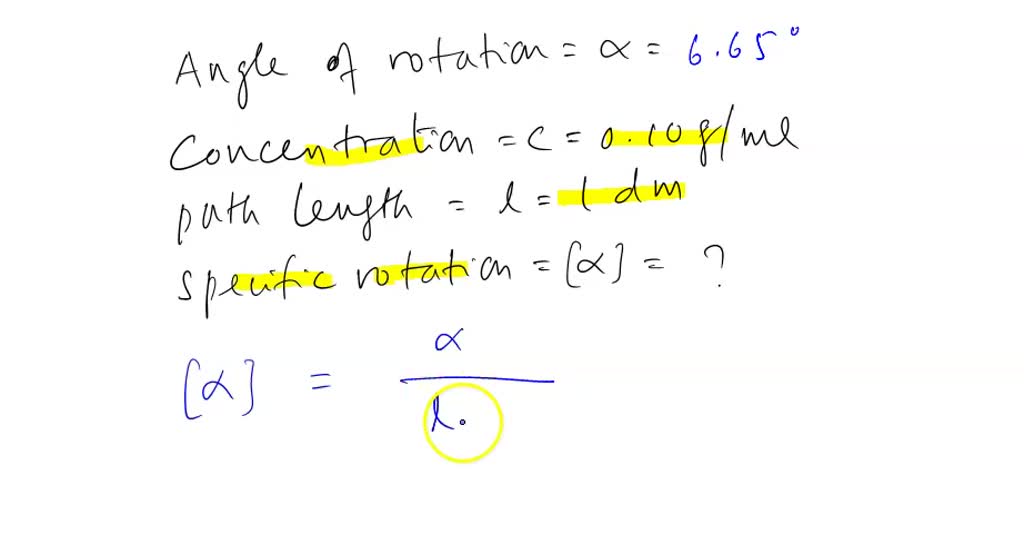 Angle of rotation = α = 6.65°
Concentration = C = 0.10 g/ml
path length = l = 1 dm
specific rotation = [α] = ?
[α] = α / l.